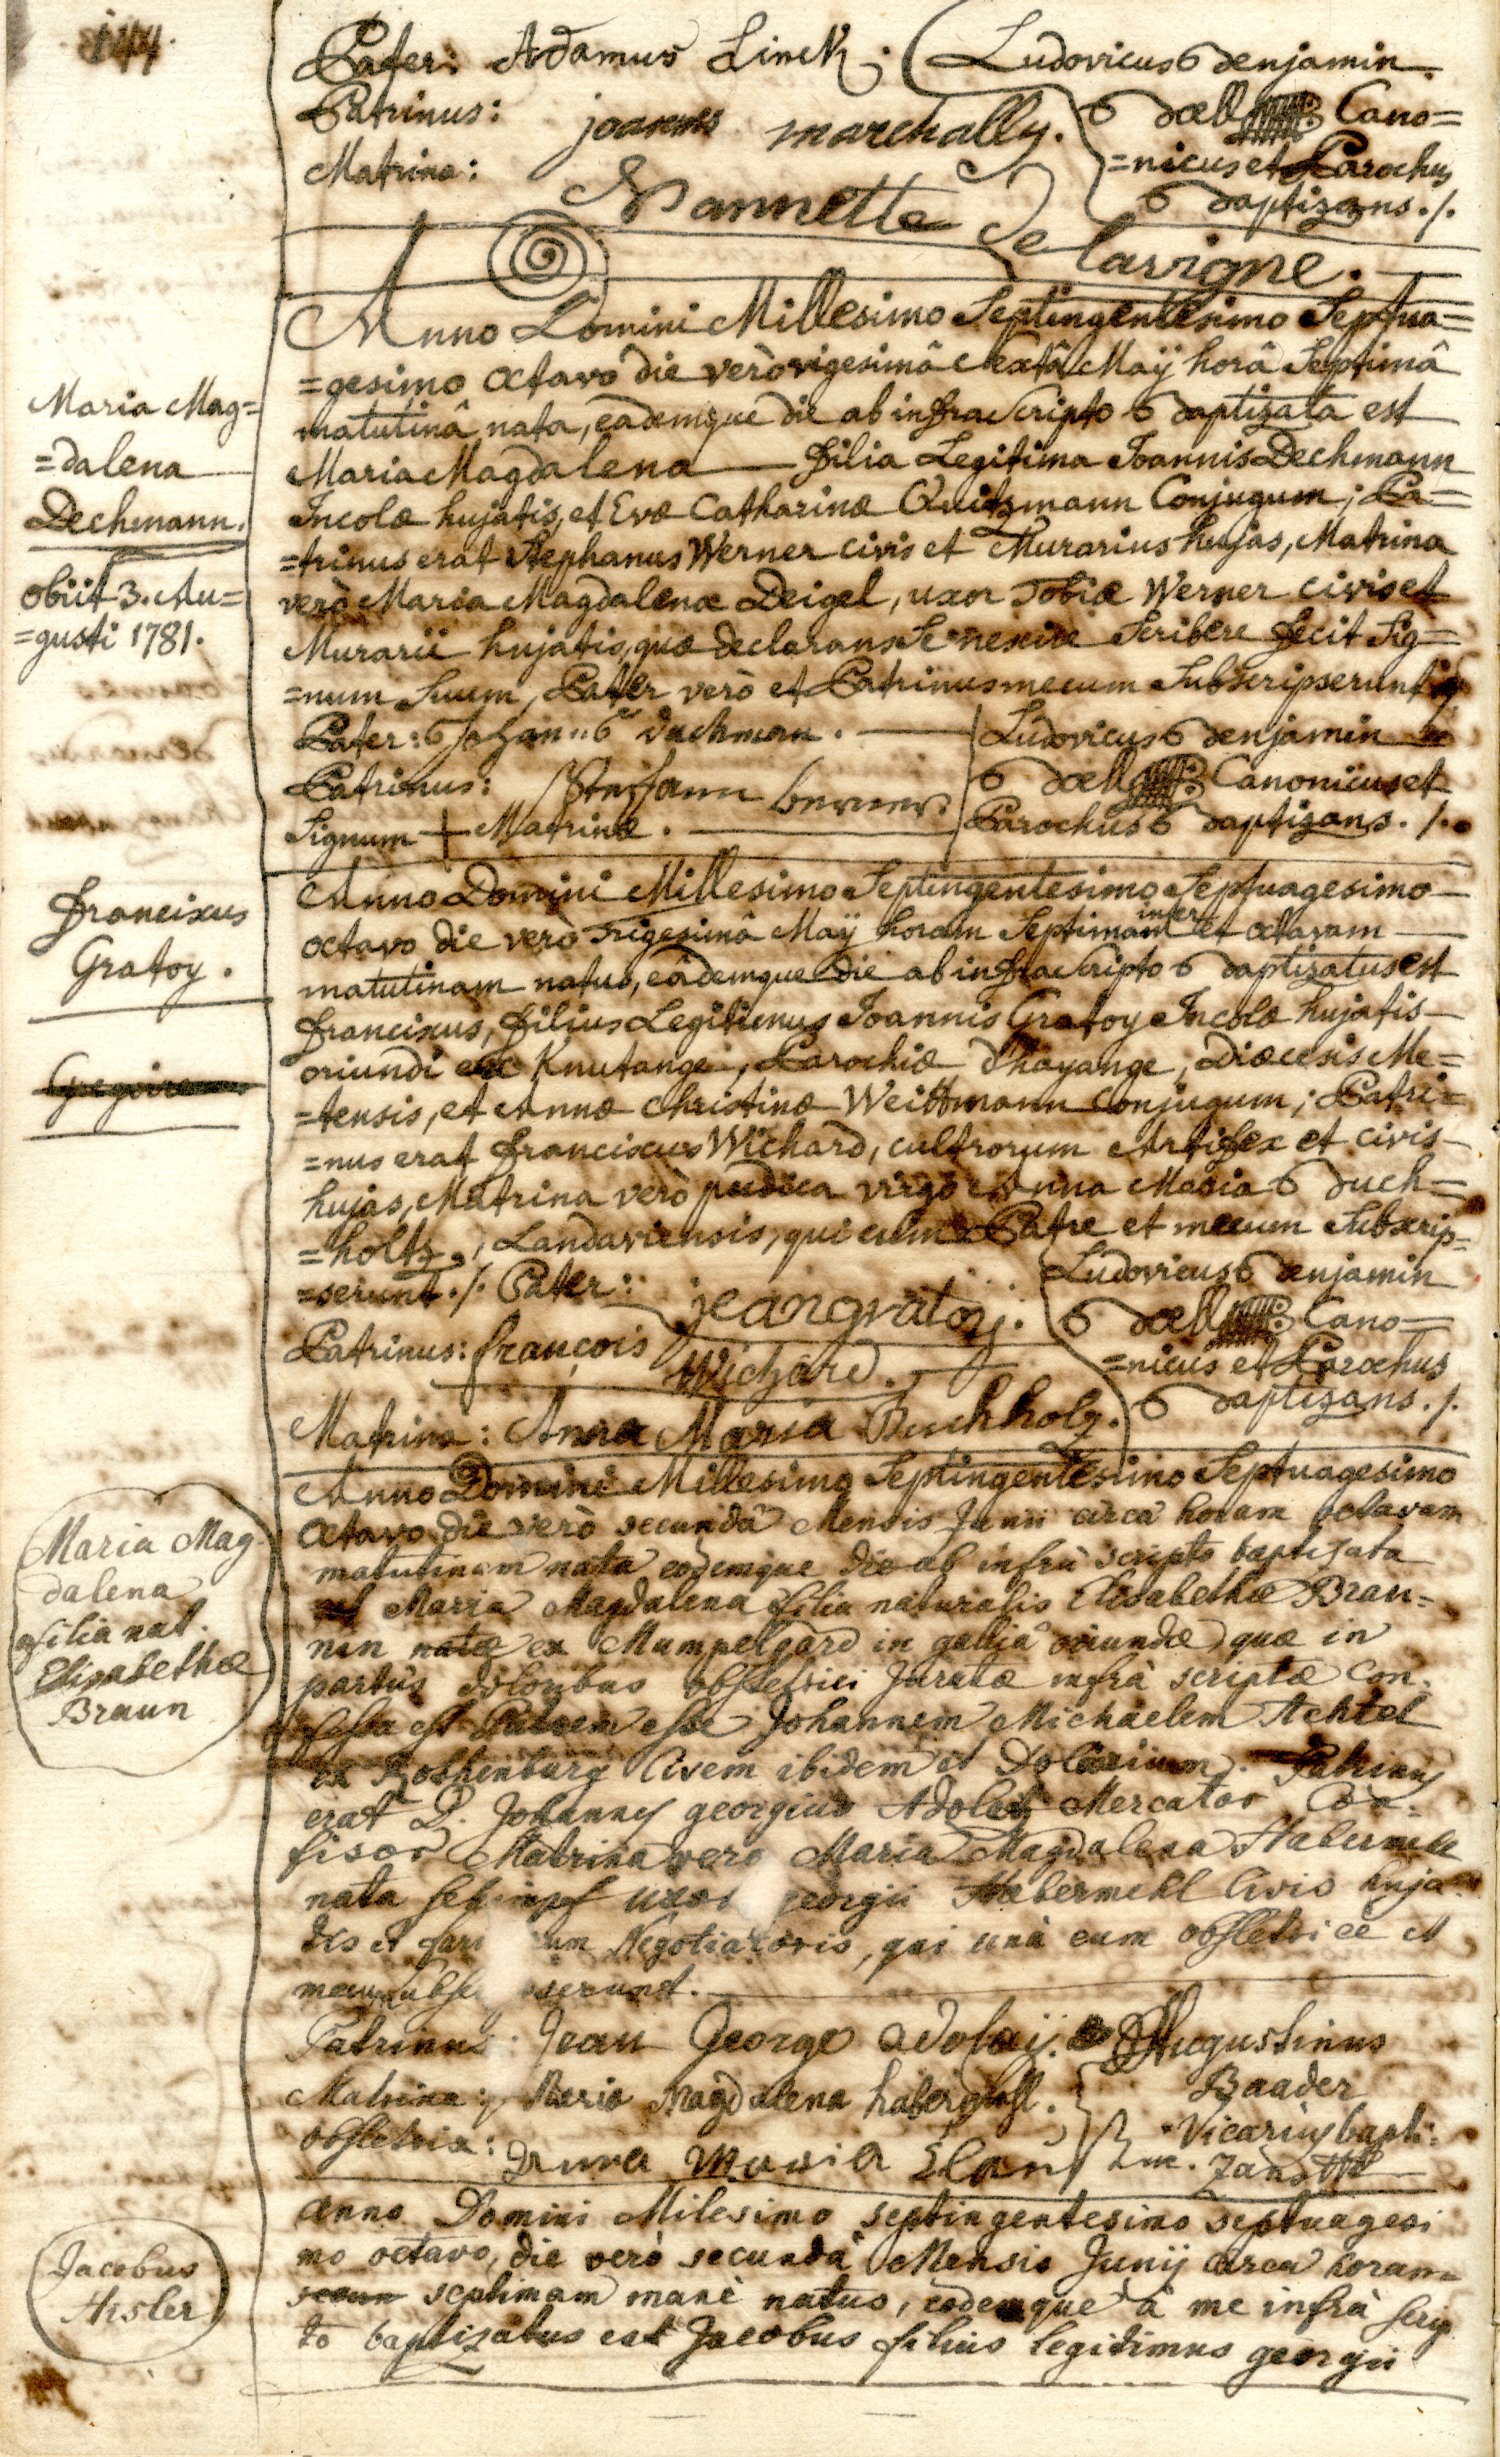 144.
Pater: Adamus Linck;
Patrinus: joannes marchally.
Matrina: Nannette Delavigne.
Ludovicus Benjamin
Boell Cano=
=nicus et Parochus
Baptizans ./.
Maria Mag=
=dalena
Dechmann.
obiit 3. Au=
=gusti 1781.
Anno Domini Millesimo Septingentesimo Septua=
=gesimo octavo die verò vigesimâ sextâ Maÿ horâ Septimâ
matutinâ nata, eademque die ab infra Scripto Baptizata est
Maria Magdalena — filia Legitima Joannis Dechmann
Incolæ hujatis, et Evæ Catharinæ Quitzmann Conjugum; Pa=
=trinus erat Stephanus Werner civis et Murarius hujas, Matrina
verò Maria Magdalena Deigel, uxor Tobiæ Werner civis et
Murarii hujatis, quæ declarans Se nescire Scribere fecit Sig=
=num Suum, Pater verò et Patrinus mecum Subscripserunt
Pater: Johann Dachman.
Patrinus: Steffann Werner.
Signum + Matrinæ.
Ludovicus Benjamin
Boell Canonicus et
Parochus Baptizans. /.
Franciscus
Gratoy.
Gregoire
Anno Domini Millesimo Septingentesimo Septuagesimo
octavo die verò Trigesimâ Maÿ horam Septimam inter et octavam
matutinam natus, eâdemque die ab infra Scripto Baptizatus est
franciscus, filius Legitimus Joannis Gratoy Incolæ hujatis
oriundi ex Knutange, Parochiæ d'hayange, Diæcesis Me=
=tensis, et Annæ Christinæ Weittmann Conjugum; Patri=
=nus erat franciscus Wichard, cultrorum Artifex et civis
hujas, Matrina verò pudica virgo Anna Maria Buch=
=holtz, Landaviensis, qui cum Patre et mecum Subscrip=
=serunt ./. Pater: jean gratoij.
Patrinus: françois Wichard.
Matrina: Anna Maria Buchholz.
Ludovicus Benjamin
Boell Cano=
=nicus et Parochus
Baptizans. /.
Maria Mag
dalena
filia nat.
Elisabethæ
Braun
Anno Domini Millesimo Septingentesimo Septuagesimo
octavo die verò secundâ Mensis Junii circa horam octavam
matutinam nata eodemque die ab infrà scripto baptizata
est Maria Magdalena filia naturalis Elisabethæ Brau=
nin natæ ex Mumpelgard in galliâ oriundæ quæ in
partus doloribus obstetrici Juratæ infrà scriptæ con.
fessa est Patrem esse Johannem Michaelem Achtel
ex Rothenburg Civem ibidem et Doliarium. Patrinus
erat D. Johannes georgius Adolay Mercator Con=
fisor Matrina vero Maria Magdalena Habermehl
nata uxor georgii Habermehl Civis huja
tis et Negotiatoris, qui unà cum obstetrice et
Patrinus: Jean George adolaij.
Matrina: Maria Magdalena habermehl.
obstetrix: Anna Maria
Augustinus
Baader
Vicarius bapti=
zans
Jacobus
Hisler
anno Domini Milesimo septingentesimo septuagesi
mo octavo, die verò secundâ Mensis Junij circa horam
secun septimam manè natus, eodemque à me infrà scrip
to baptizatus est Jacobus filius legitimus georgii